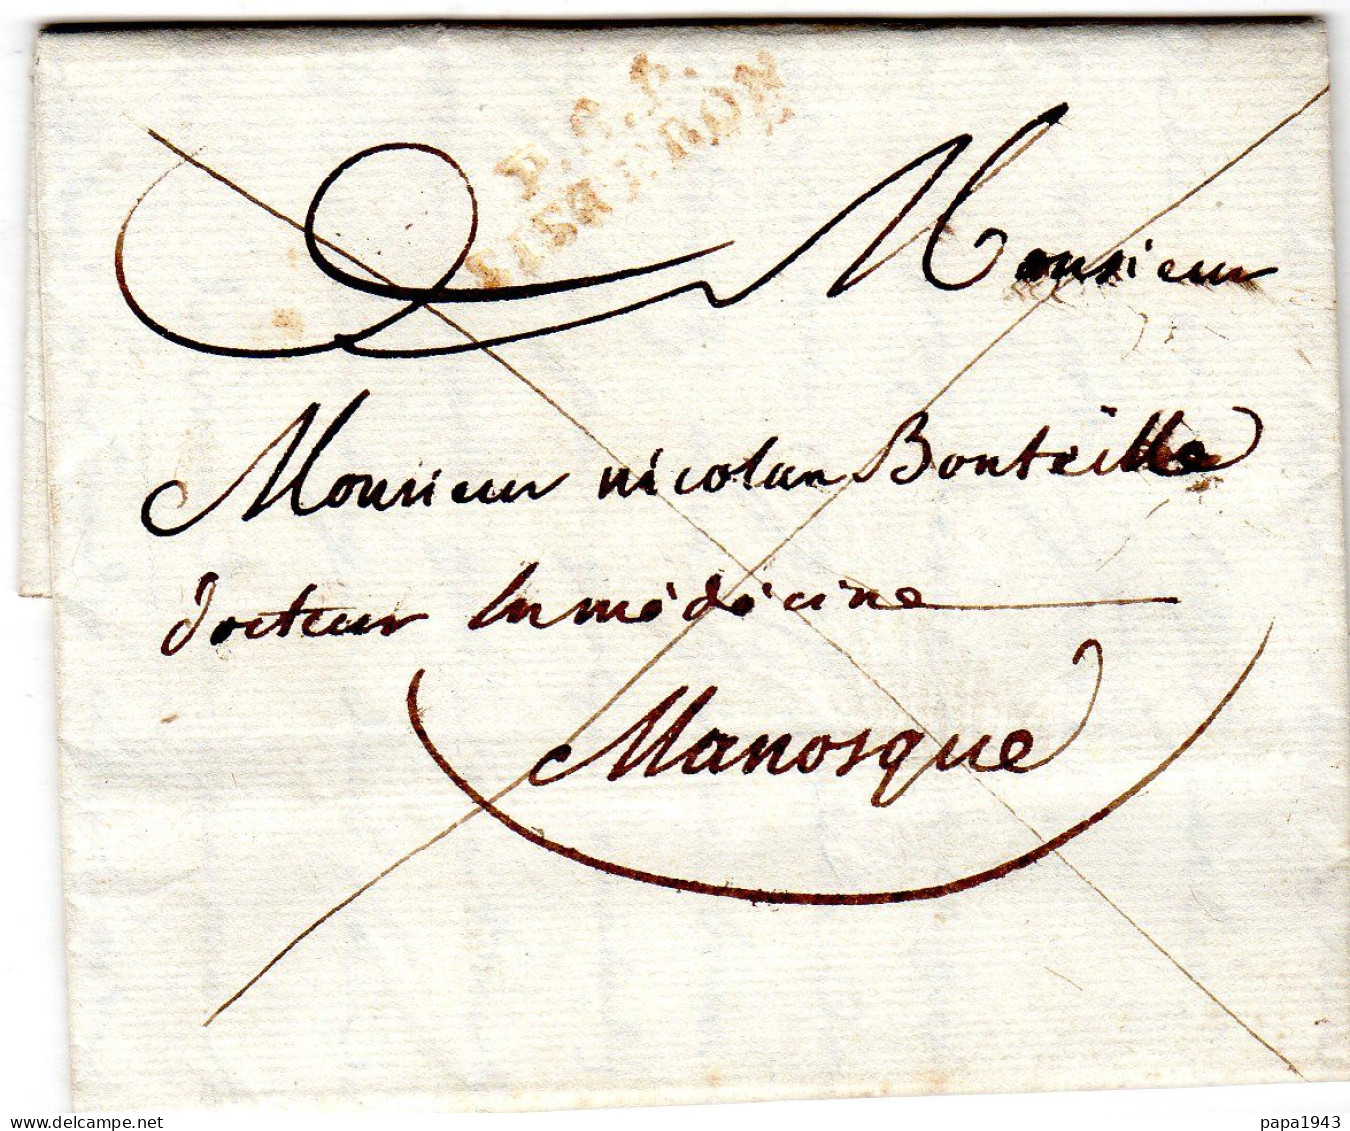 P.P.P.
SISTERON
Monsieur
Monsieur nicolas Bouteille
docteur en médécine
Manosque
papa1943